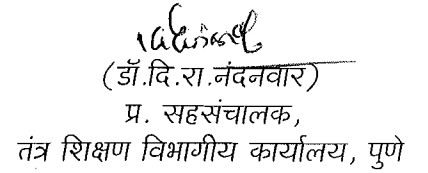 (डॉ.दि.रा.नंदनवार)
प्र. सहसंचालक,
तंत्र शिक्षण विभागीय कार्यालय, पुणे